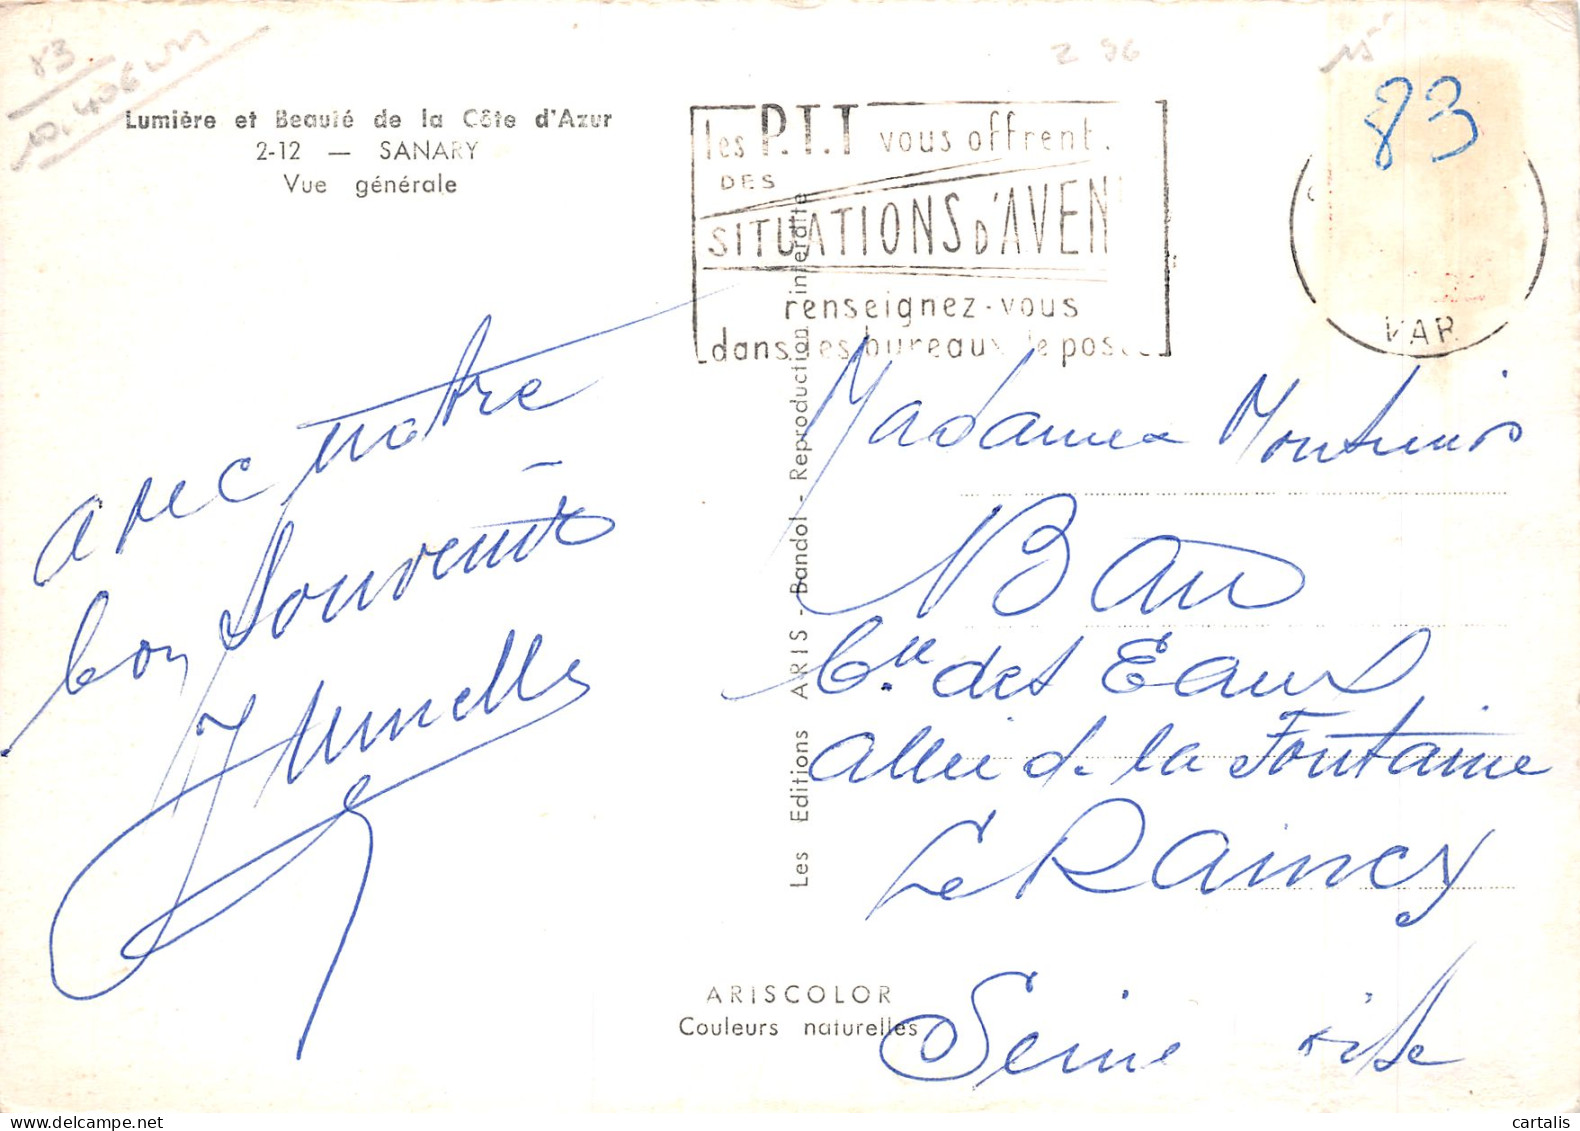 83
Z 96
15
83
Lumière et Beauté de la Côte d'Azur
2-12 — SANARY
Vue générale
les P.T.T vous offrent
DES
SITUATIONS D'AVEN
renseignez-vous
dans les bureaux de poste
VAR
avec notre
bon souvenir
Les Editions ARIS - Bandol - Reproduction interdite
Madame
Bau
Cie des Eaux
allée de la Fontaine
Le Raincy
Seine
ARISCOLOR
Couleurs naturelles
cartalis